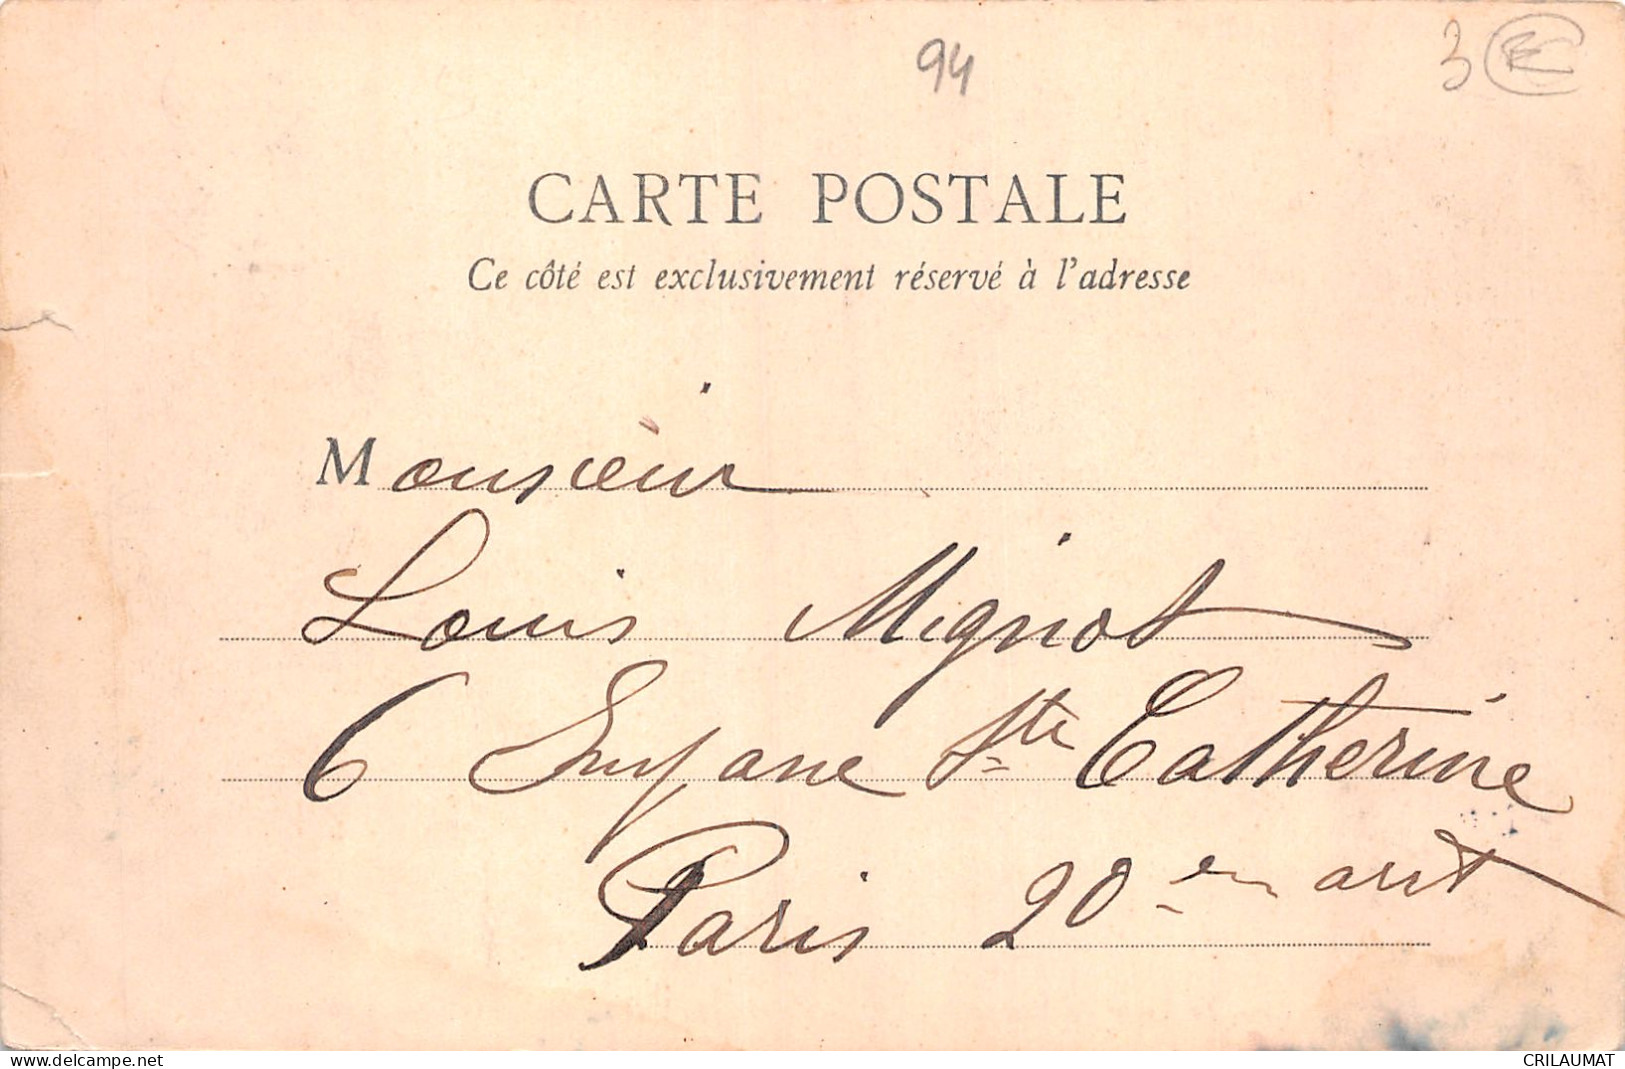 94
3
CARTE POSTALE
Ce côté est exclusivement réservé à l'adresse
Monsieur
Louis Mignot
6 Ste Catherine
Paris 20 em arrt
www.delcampe.net
CRILAUMAT